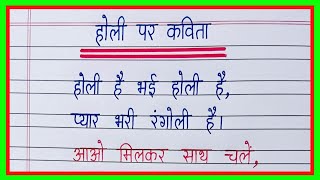 होली पर कविता
होली है भई होली है,
प्यार भरी रंगोली है।
आओ मिलकर साथ चलें,